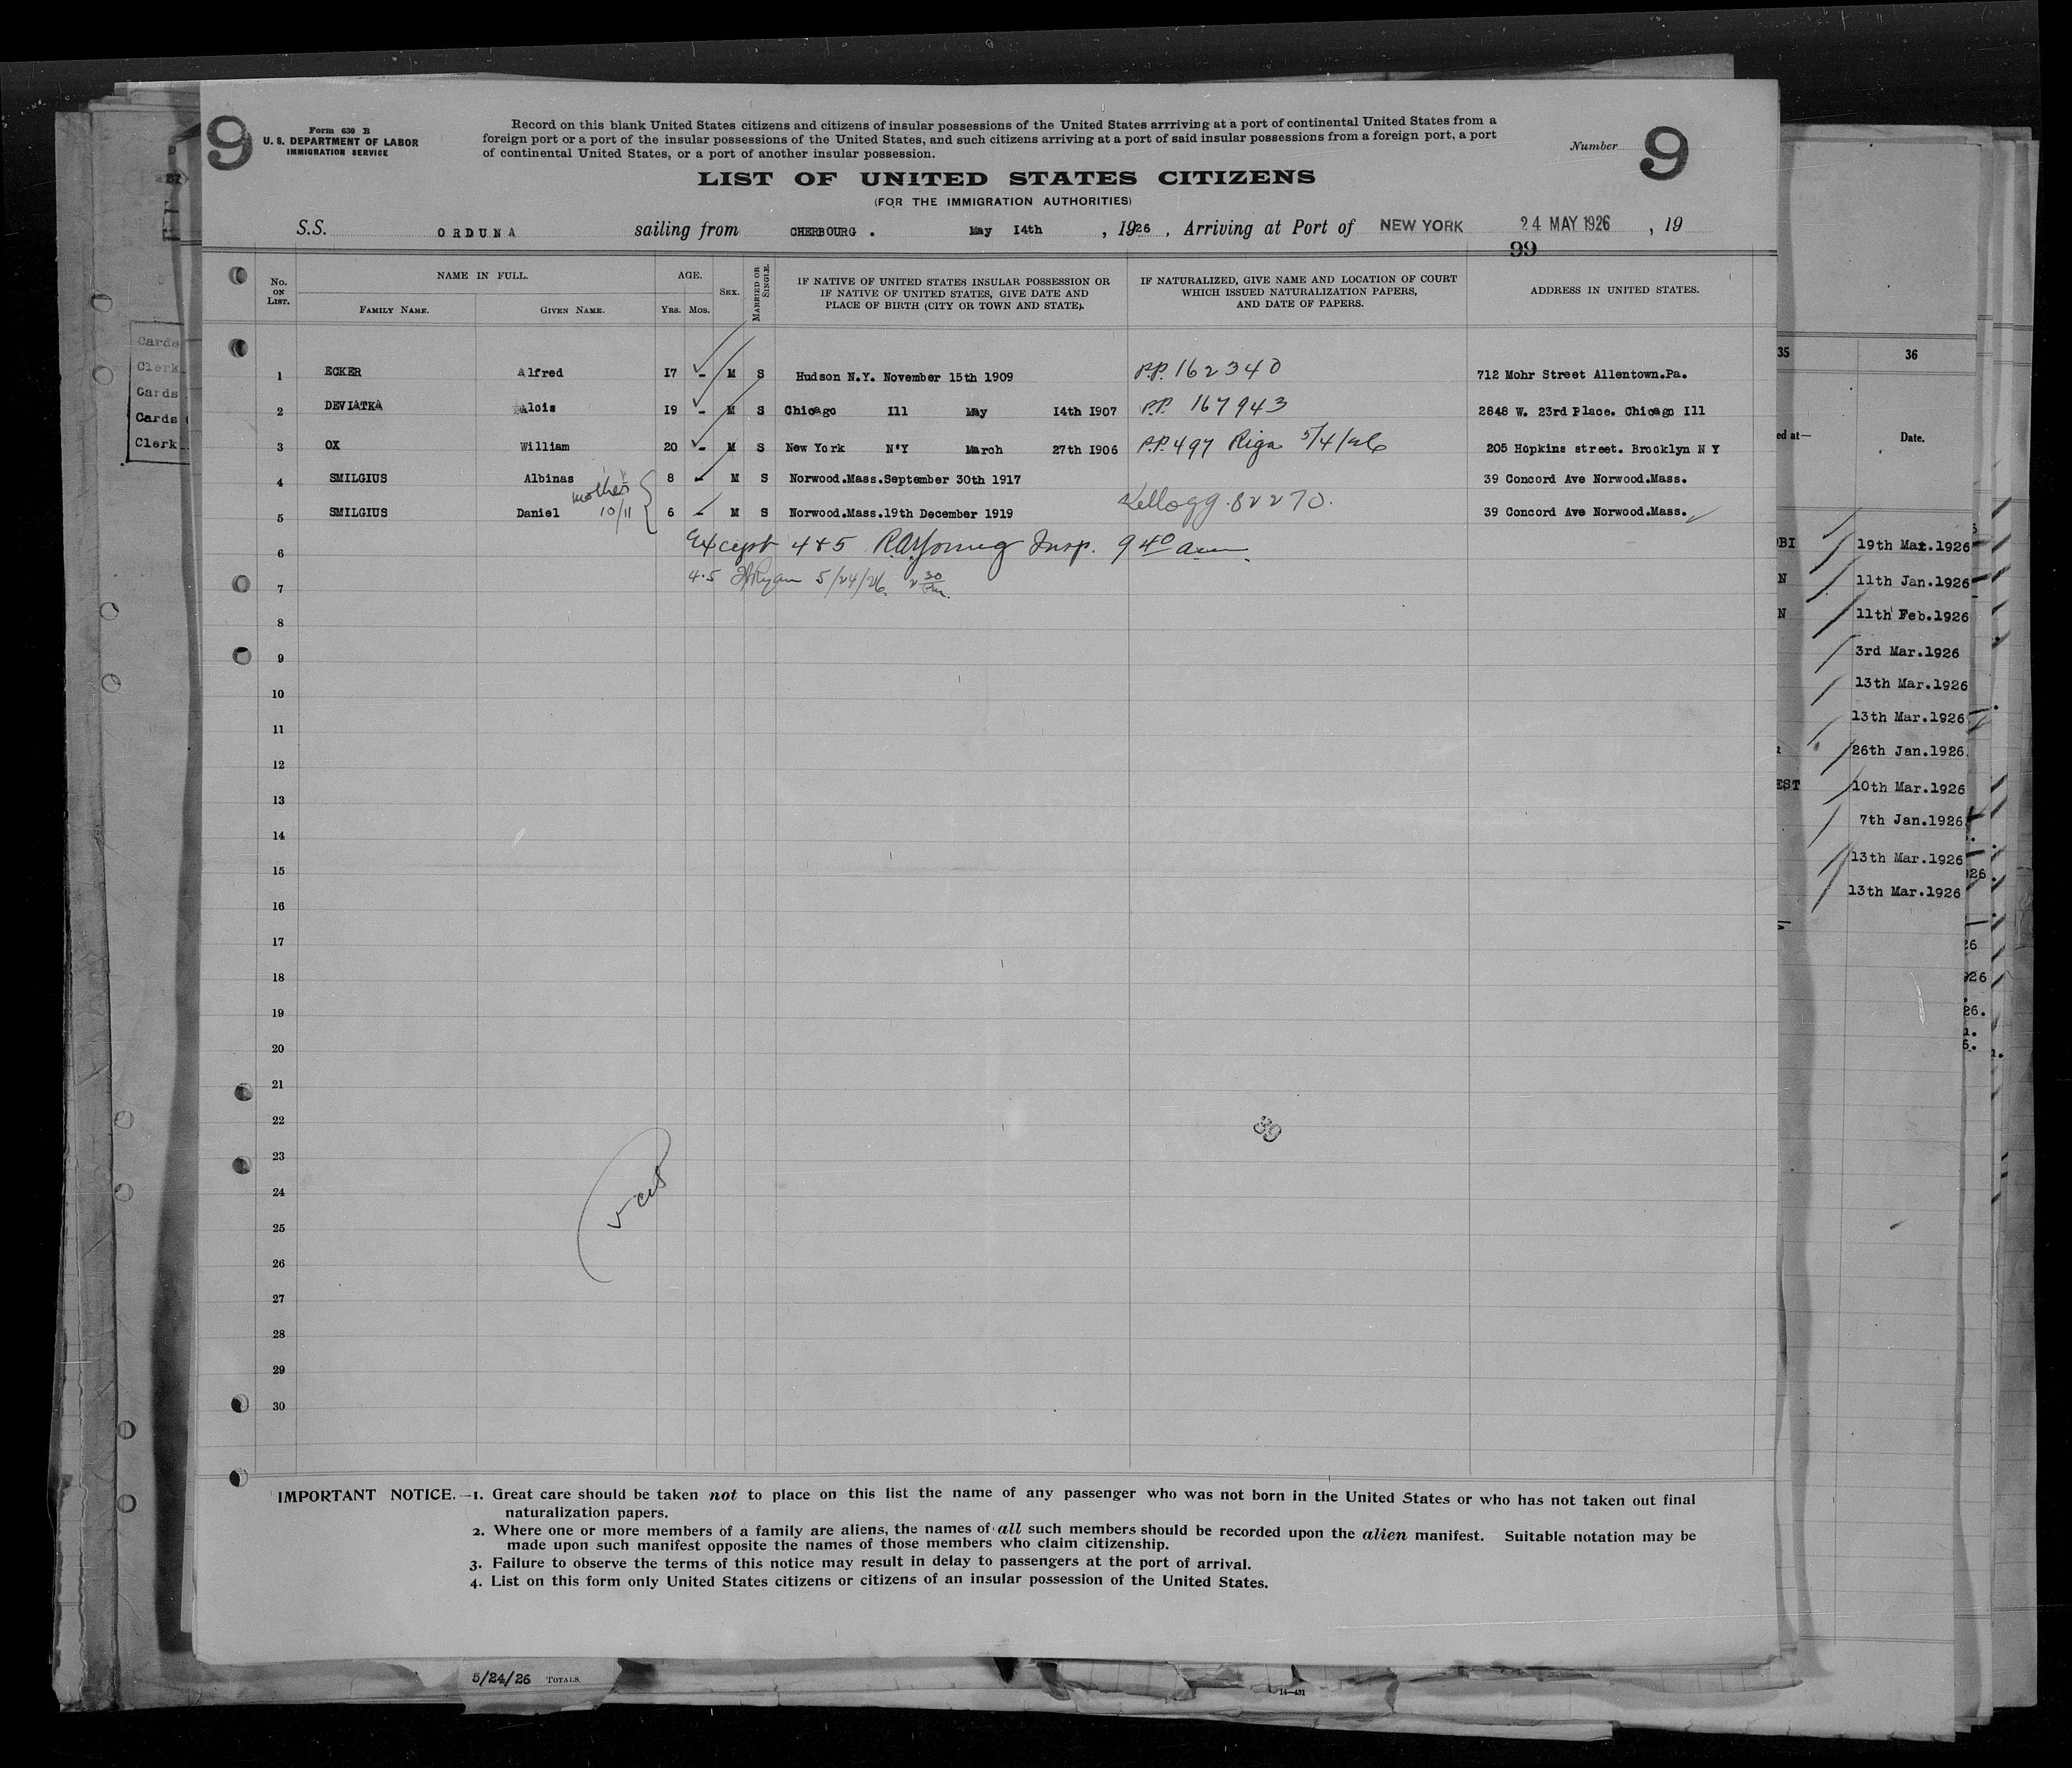 9
Form 630 B
U. S. DEPARTMENT OF LABOR
IMMIGRATION SERVICE
Record on this blank United States citizens and citizens of insular possessions of the United States arrriving at a port of continental United States from a
foreign port or a port of the insular possessions of the United States, and such citizens arriving at a port of said insular possessions from a foreign port, a port
of continental United States, or a port of another insular possession.
Number 9
LIST OF UNITED STATES CITIZENS
(FOR THE IMMIGRATION AUTHORITIES)
S.S. ORDUNA sailing from CHERBOURG . May 14th , 1926 , Arriving at Port of NEW YORK 24 MAY 1926 , 19
99
No. ON LIST. NAME IN FULL. FAMILY NAME. GIVEN NAME. AGE. Yrs. Mos. SEX. MARRIED OR SINGLE. IF NATIVE OF UNITED STATES INSULAR POSSESSION OR IF NATIVE OF UNITED STATES, GIVE DATE AND PLACE OF BIRTH (CITY OR TOWN AND STATE). IF NATURALIZED, GIVE NAME AND LOCATION OF COURT WHICH ISSUED NATURALIZATION PAPERS, AND DATE OF PAPERS. ADDRESS IN UNITED STATES.
1 ECKER Alfred 17 - M S Hudson N.Y. November 15th 1909 P.P. 162340 712 Mohr Street Allentown.Pa.
2 DEVIATKA Alois 19 - M S Chicago Ill May 14th 1907 P.P. 167943 2848 W. 23rd Place. Chicago Ill
3 OX William 20 - M S New York N'Y March 27th 1906 P.P. 497 Riga 5/4/26 205 Hopkins street. Brooklyn N Y
4 SMILGIUS Albinas 8 - M S Norwood.Mass.September 30th 1917 39 Concord Ave Norwood.Mass.
mother 10/11
5 SMILGIUS Daniel 6 - M S Norwood.Mass.19th December 1919 Kellogg.82270. 39 Concord Ave Norwood.Mass.
6 Except 4+5 R.A.Young Insp. 9 40 am
7 4.5 Ryan 5/24/26. 2 30 Pm.
8
9
10
11
12
13
14
15
16
17
18
19
20
21
22
23
24
25
26
27
28
29
30
30
5 cit
IMPORTANT NOTICE.—1. Great care should be taken not to place on this list the name of any passenger who was not born in the United States or who has not taken out final
naturalization papers.
2. Where one or more members of a family are aliens, the names of all such members should be recorded upon the alien manifest. Suitable notation may be
made upon such manifest opposite the names of those members who claim citizenship.
3. Failure to observe the terms of this notice may result in delay to passengers at the port of arrival.
4. List on this form only United States citizens or citizens of an insular possession of the United States.
5/24/26 TOTALS.
14—431
Cards
Clerk
Cards
Cards
Clerk
35 36
ed at— Date.
OBI 19th Mar.1926
N 11th Jan.1926
N 11th Feb.1926
3rd Mar.1926
13th Mar.1926
13th Mar.1926
26th Jan.1926
EST 10th Mar.1926
7th Jan.1926
13th Mar.1926
13th Mar.1926
26
926
26.